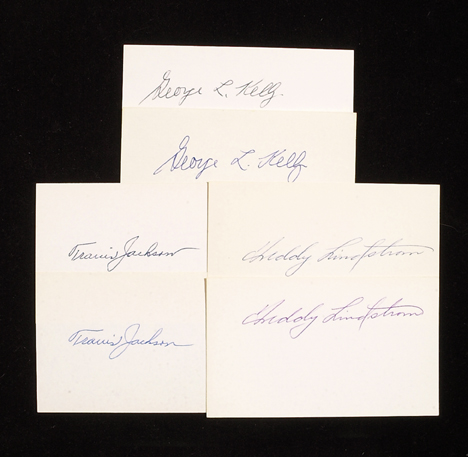 George L. Kelly.
George L. Kelly
Travis Jackson
Freddy Lindstrom
Travis Jackson
Freddy Lindstrom